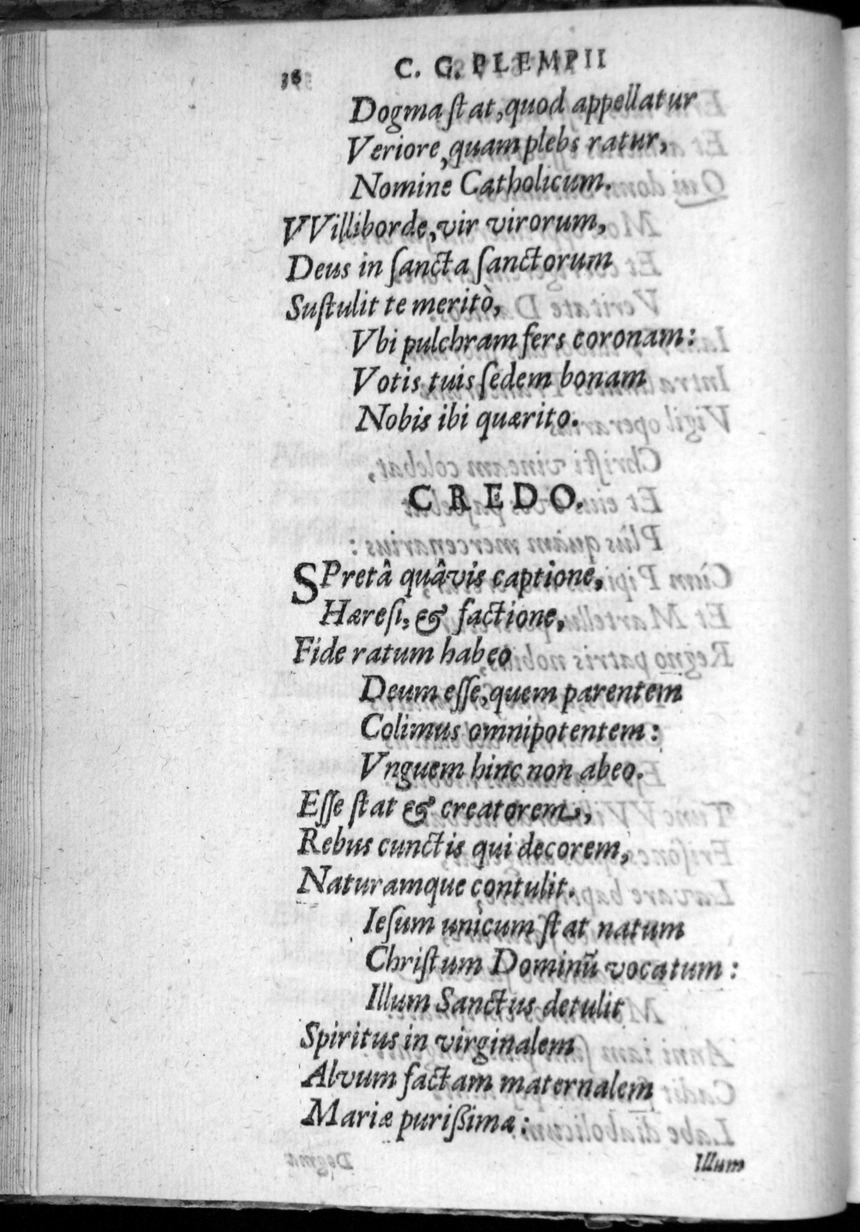 36 C. G. PLEMPII
Dogma ſtat, quod appellatur
Veriore, quam plebs ratur,
Nomine Catholicum.
VVilliborde, vir virorum,
Deus in ſancta ſanctorum
Suſtulit te meritò,
Vbi pulchram fers coronam:
Votis tuis ſedem bonam
Nobis ibi quærito.
CREDO.
SPretâ quâvis captione,
Hæreſi, & factione,
Fide ratum habeo
Deum eſſe, quem parentem
Colimus omnipotentem:
Vnguem hinc non abeo.
Eſſe ſtat & creatorem,
Rebus cunctis qui decorem,
Naturamque contulit.
Ieſum unicum ſtat natum
Chriſtum Dominũ vocatum:
Illum Sanctus detulit
Spiritus in virginalem
Alvum factam maternalem
Mariæ purißimæ:
Illum